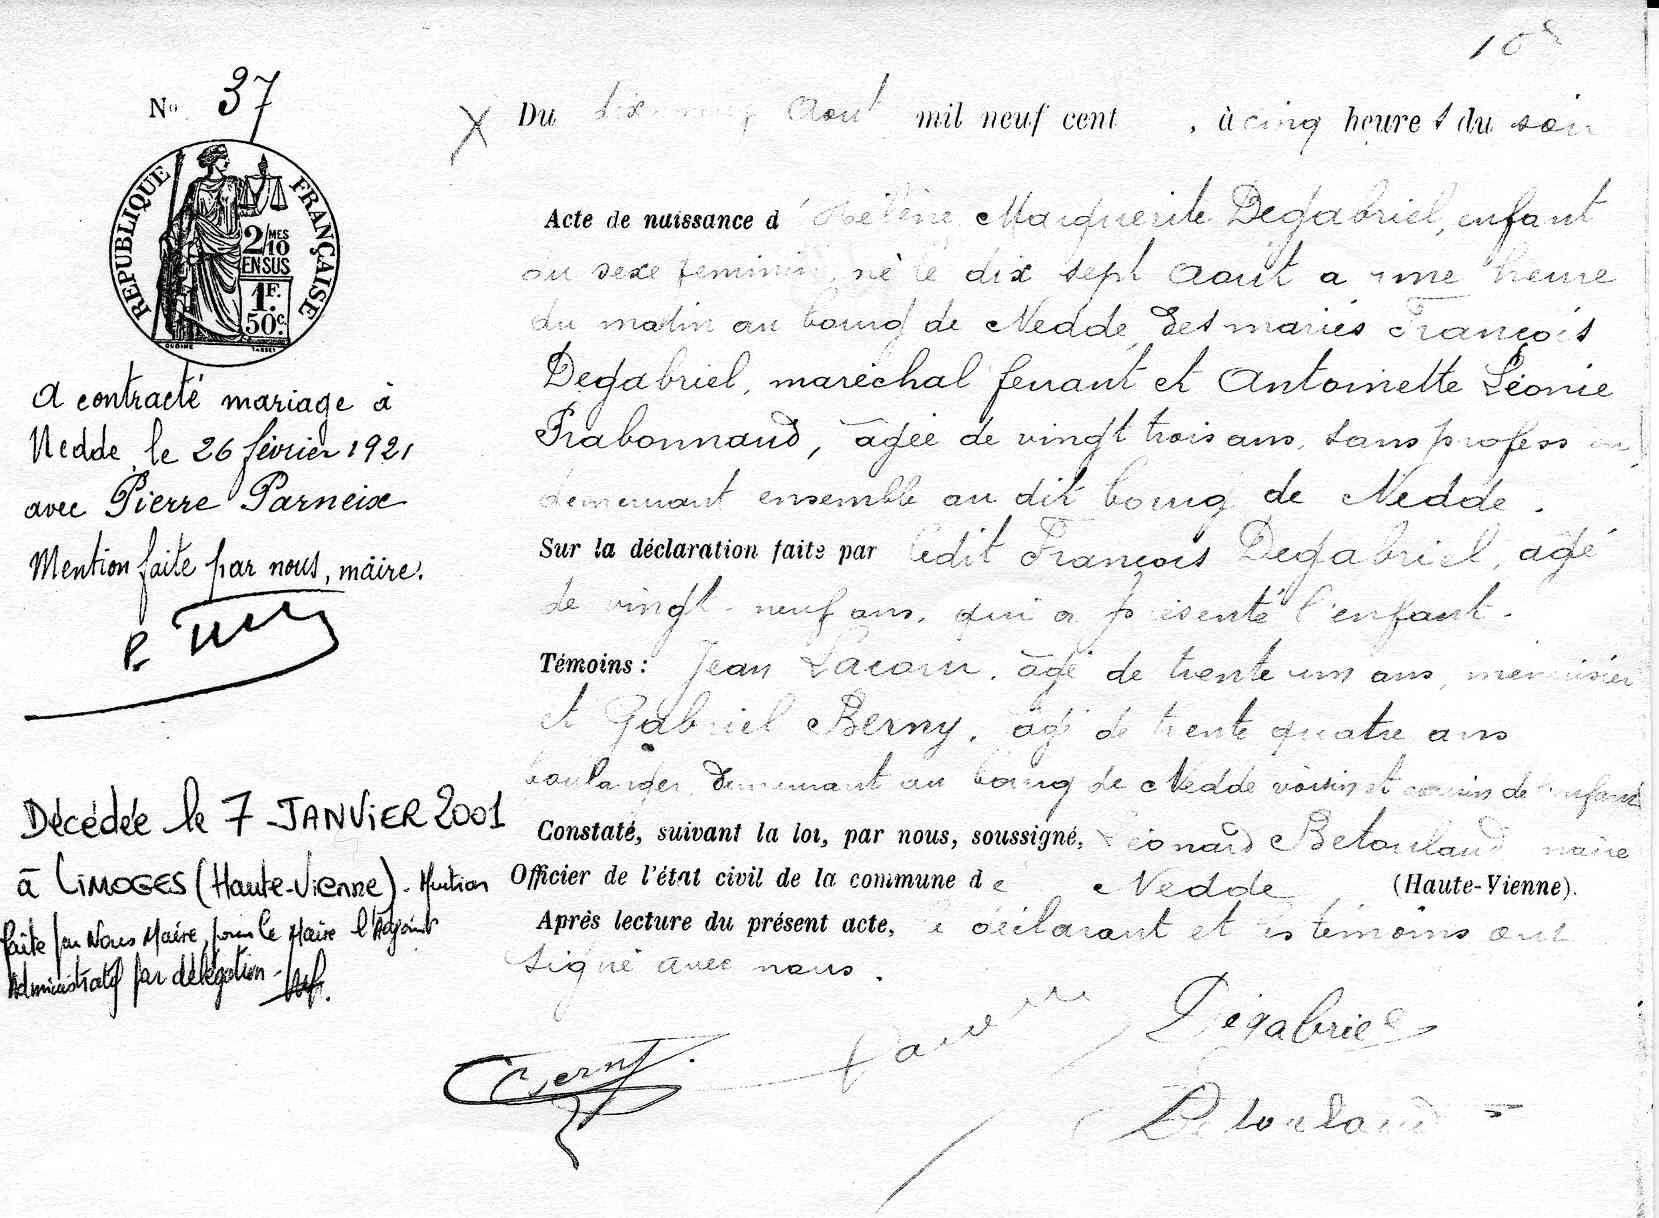 10e
No 37
RÉPUBLIQUE FRANÇAISE
2/MES
10
EN SUS
1F.
50c.
OUDINÉ TASSET
A contracté mariage à
Nedde, le 26 février 1921
avec Pierre Parneix
Mention faite par nous, màire.
Décédée le 7 JANVIER 2001
à LIMOGES (Haute-Vienne). Mention
faite par Nous Maire, pour Le Maire l'Adjoint
Administratif par délégation -
X Du dix-neuf Aout mil neuf cent , à cinq heures du soir
Acte de naissance d'Hélène Marguerite Degabriel, enfant
du sexe feminin, né le dix sept Août a une heure
du matin au bourg de Nedde, des mariés François
Degabriel, maréchal ferrant et Antoinette Léonie
Prabonnaud, âgée de vingt trois ans, sans profession,
demeurant ensemble au dit bourg de Nedde.
Sur la déclaration faite par ledit François Degabriel, âgé
de vingt-neuf ans, qui a présenté l'enfant.
Témoins: Jean Lacour, âgé de trente un ans, menuisier
et Gabriel Berny, âgé de trente quatre ans
boulanger, demeurant au bourg de Nedde voisin et cousin de l'enfant
Constaté, suivant la loi, par nous, soussigné, Léonard Betoulaud maire
Officier de l'état civil de la commune de Nedde (Haute-Vienne).
Après lecture du présent acte, le déclarant et les témoins ont
signé avec nous.
Degabriel
Berny
Betoulaud